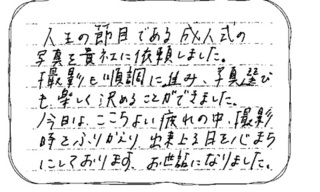 人生の節目である成人式の
写真を貴社に依頼しました。
撮影も順調に進み、写真選び
も楽しく決めることができました。
今日は、ここちよい疲れの中、撮影
時をふりかえり、出来上る日を心まち
にしております。お世話になりました。